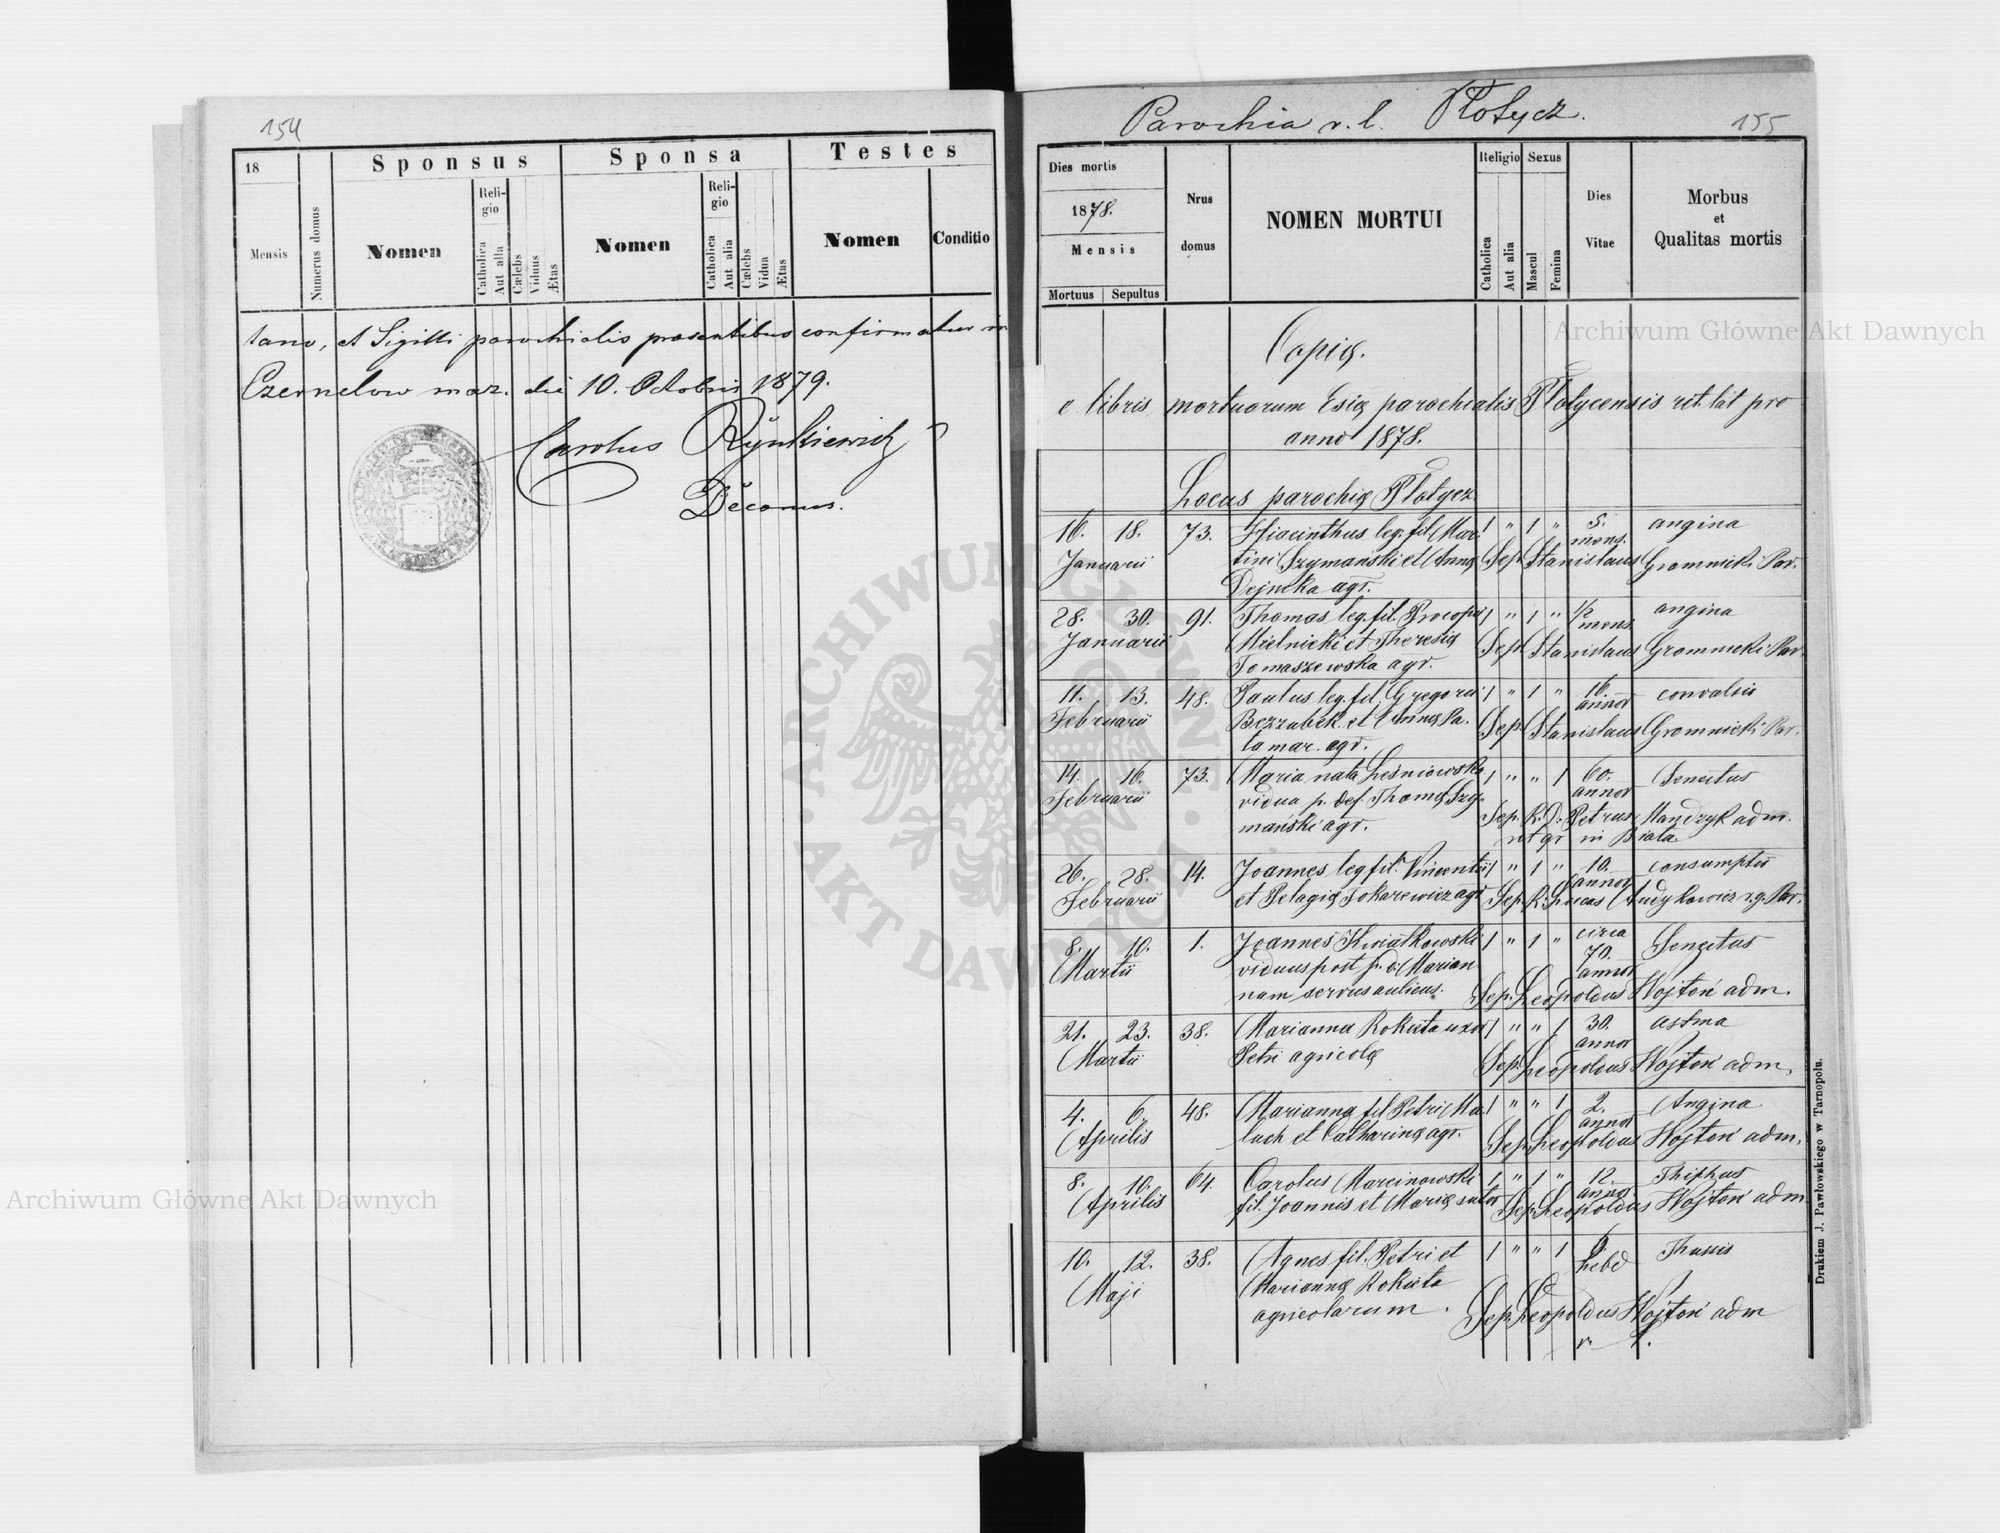 154
18
Sponsus
Sponsa
Testes
Mensis
Numerus domus
Nomen
Reli-
gio
Catholica
Aut alia
Cælebs
Viduus
Ætas
Nomen
Reli-
gio
Catholica
Aut alia
Cælebs
Vidua
Ætas
Nomen
Conditio
tano, et Sigilli parochialis praesentibus confirmatur in
Czernelow maz. die 10. Octobris 1879.
Carolus Rynkiewicz
Decanus.
Parochia r. l. Płotycz.
155
Dies mortis
1878.
Mensis
Mortuus
Sepultus
Nrus
domus
NOMEN MORTUI
Religio
Catholica
Aut alia
Sexus
Mascul
Femina
Dies
Vitae
Morbus
et
Qualitas mortis
Copia
e libris mortuorum Esię parochialis Płotycensis rit. lat pro
anno 1878.
Locus parochię Płotycz
16. 18. 73. Hiacinthus leg. fil. Mar- 1 " 1 " 5. mens. angina
Januarii tini Szymański et Annę Sep. Stanislaus Gromnicki Par.
Dejneka agr.
28. 30. 91. Thomas leg. fil. Procopii 1 " 1 " 1/2 mens. angina
Januarii Mielnicki et Theresię Sep. Stanislaus Gromnicki Par.
Tomaszewska agr.
11. 13. 48. Paulus leg. fil. Gregorii 1 " 1 " 16. annor convulsii
Februarii Bezzubek et Annę Pa- Sep. Stanislaus Gromnicki Par.
ta mar. agr.
14. 16. 73. Maria nata Leśniowska 1 " " 1 60. annor Senectus
Februarii vidua p. def. Thomę Szy- Sep. R. D. Petrus Mandzyk adm.
mański agr. rt gr in Biała
26. 28. 14. Joannes leg fil. Vincentii 1 " 1 " 10. annor consumptii
Februarii et Pelagię Tokarewicz agr Sep. R. Lucas Audykowicz r.g. Par.
8. 10. 1. Joannes Kwiatkowski 1 " 1 " circa 70. annor Senectus
Martii viduus post p. d. Marian-
nam servus aulicus. Sep. Leopoldus Wojton adm.
21. 23. 38. Marianna Rokieta uxor 1 " " 1 30. annor astma
Martii Petri agricolę Sep. Leopoldus Wojton adm.
4. 6. 48. Marianna fil Petri Ma- 1 " " 1 2. annor Angina
Aprilis lach et Catharinę agr. Sep. Leopoldus Wojton adm.
8. 10. 64. Carolus Marcinowski 1 " 1 " 12. annor Thiphus
Aprilis fil. Joannis et Marię sutor Sep. Leopoldus Wojton adm
10. 12. 38. Agnes fil. Petri et 1 " " 1 6 hebd Thussis
Maji Mariannę Rokieta
agricolarum. Sep. Leopoldus Wojton adm
Drukiem J. Pawłowskiego w Tarnopolu.
Archiwum Główne Akt Dawnych
Archiwum Główne Akt Dawnych
ARCHIWUM GŁÓWNE
AKT DAWNYCH